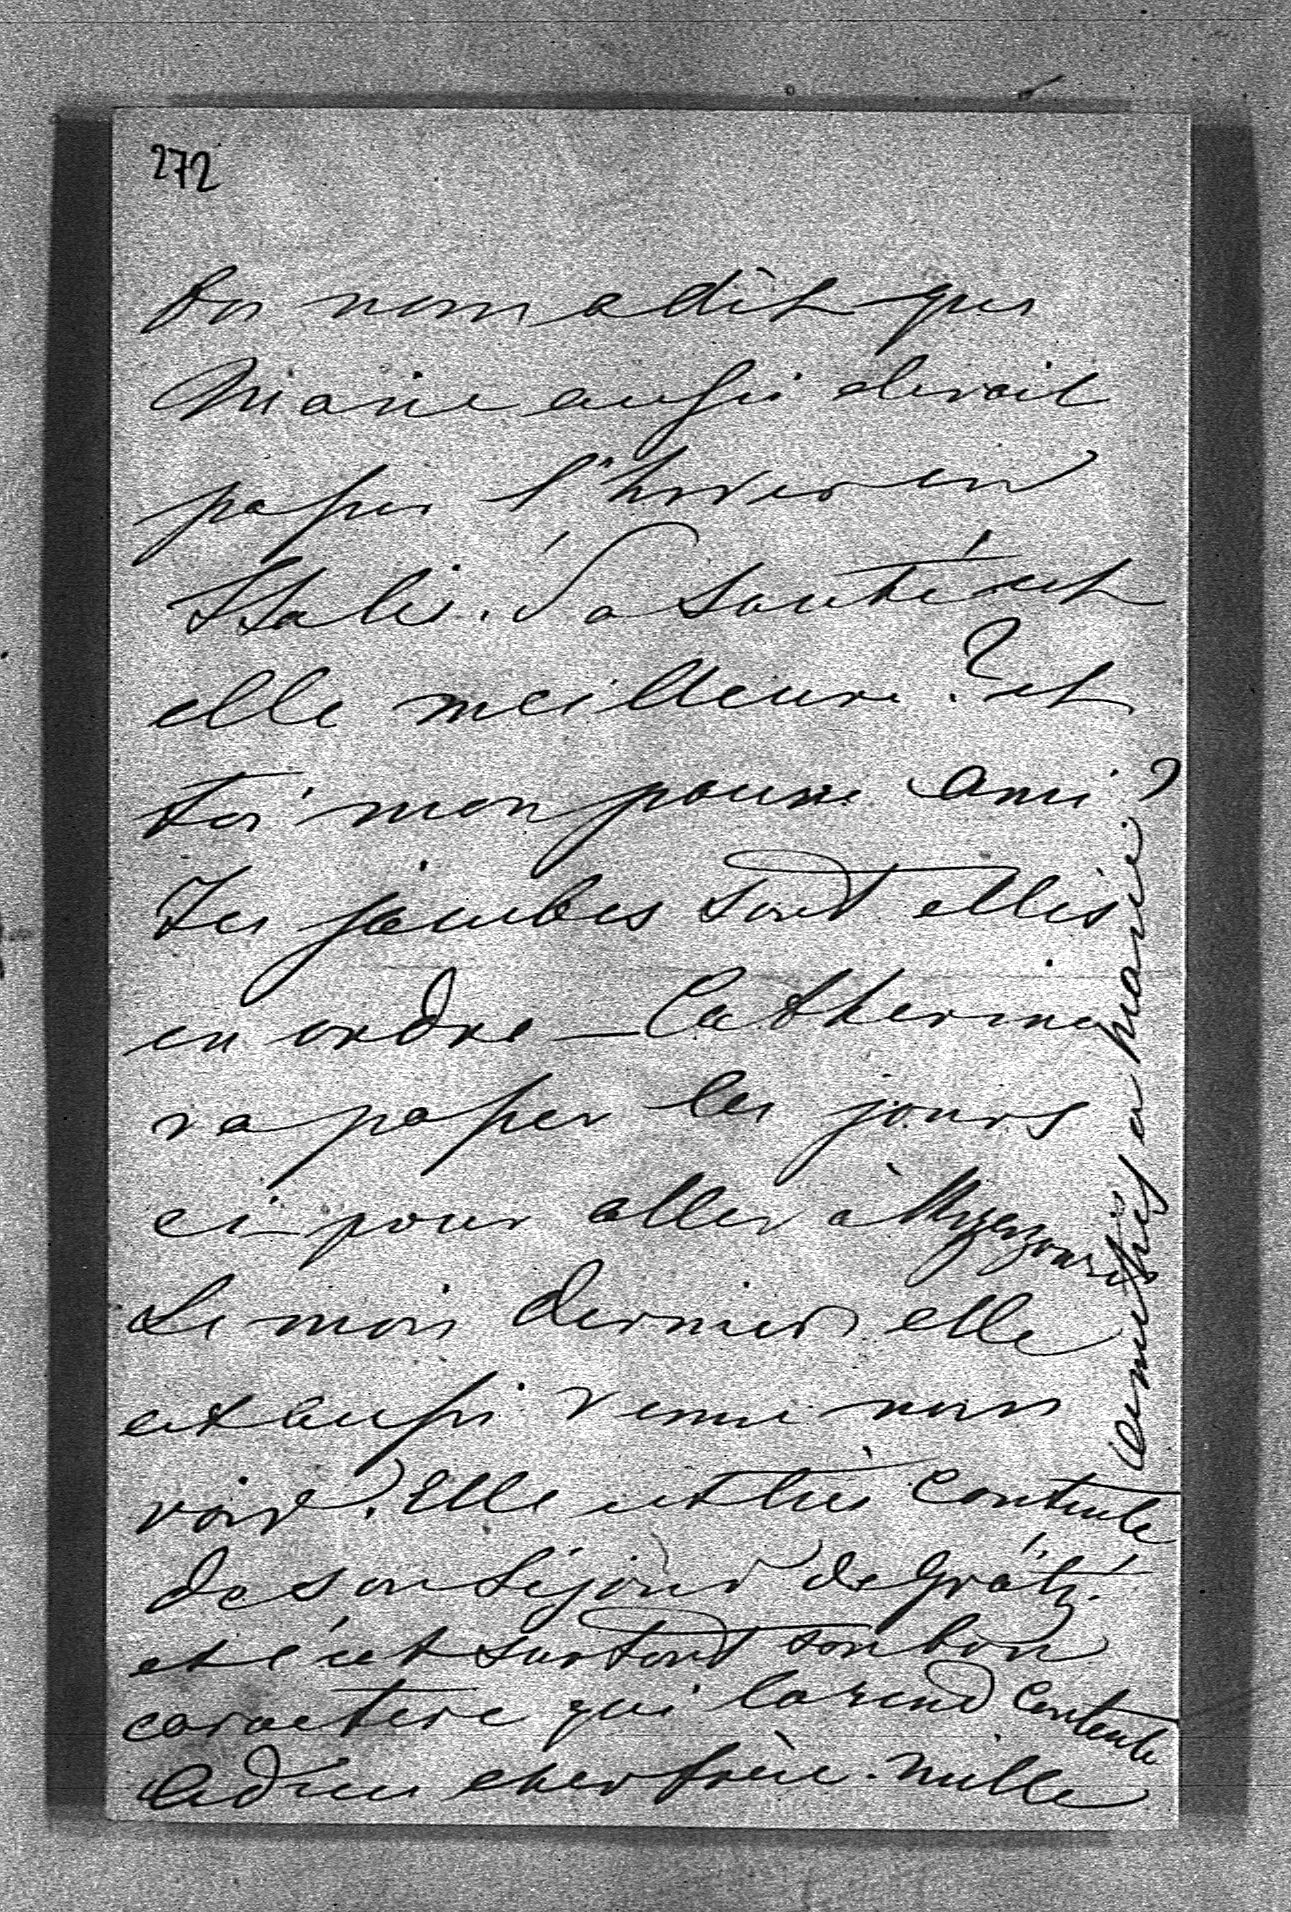 272
On nous a dit que
Marie aussi devait
passer l'hiver en
Italie. Sa santé est
elle meilleure? et
toi mon pauvre ami?
Tes jambes sont elles
en ordre – Catherine
va passer les jours
ci pour aller à
Le mois dernier elle
est aussi venue nous
voir. Elle est très contente
de son séjour de Grätz.
et c'est surtout son bon
caractere qui la rend contente
Adieu cher frère. mille
amitiés a Marie.